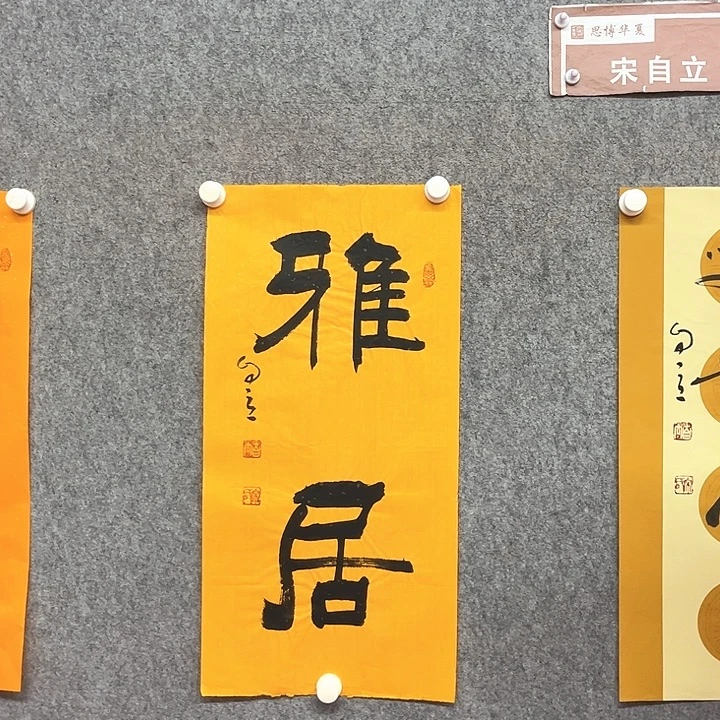 思博华夏
宋自立
雅
居
自立
自立